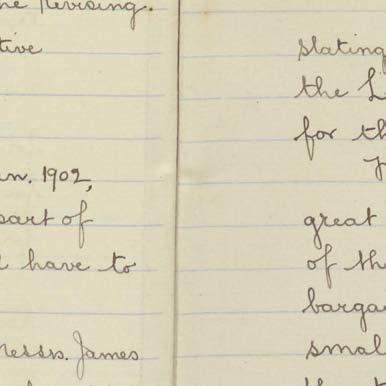 Revising.
tive
1902,
part of
have to
Messrs. James
stating
the L
for th
great
of the
barga
smal